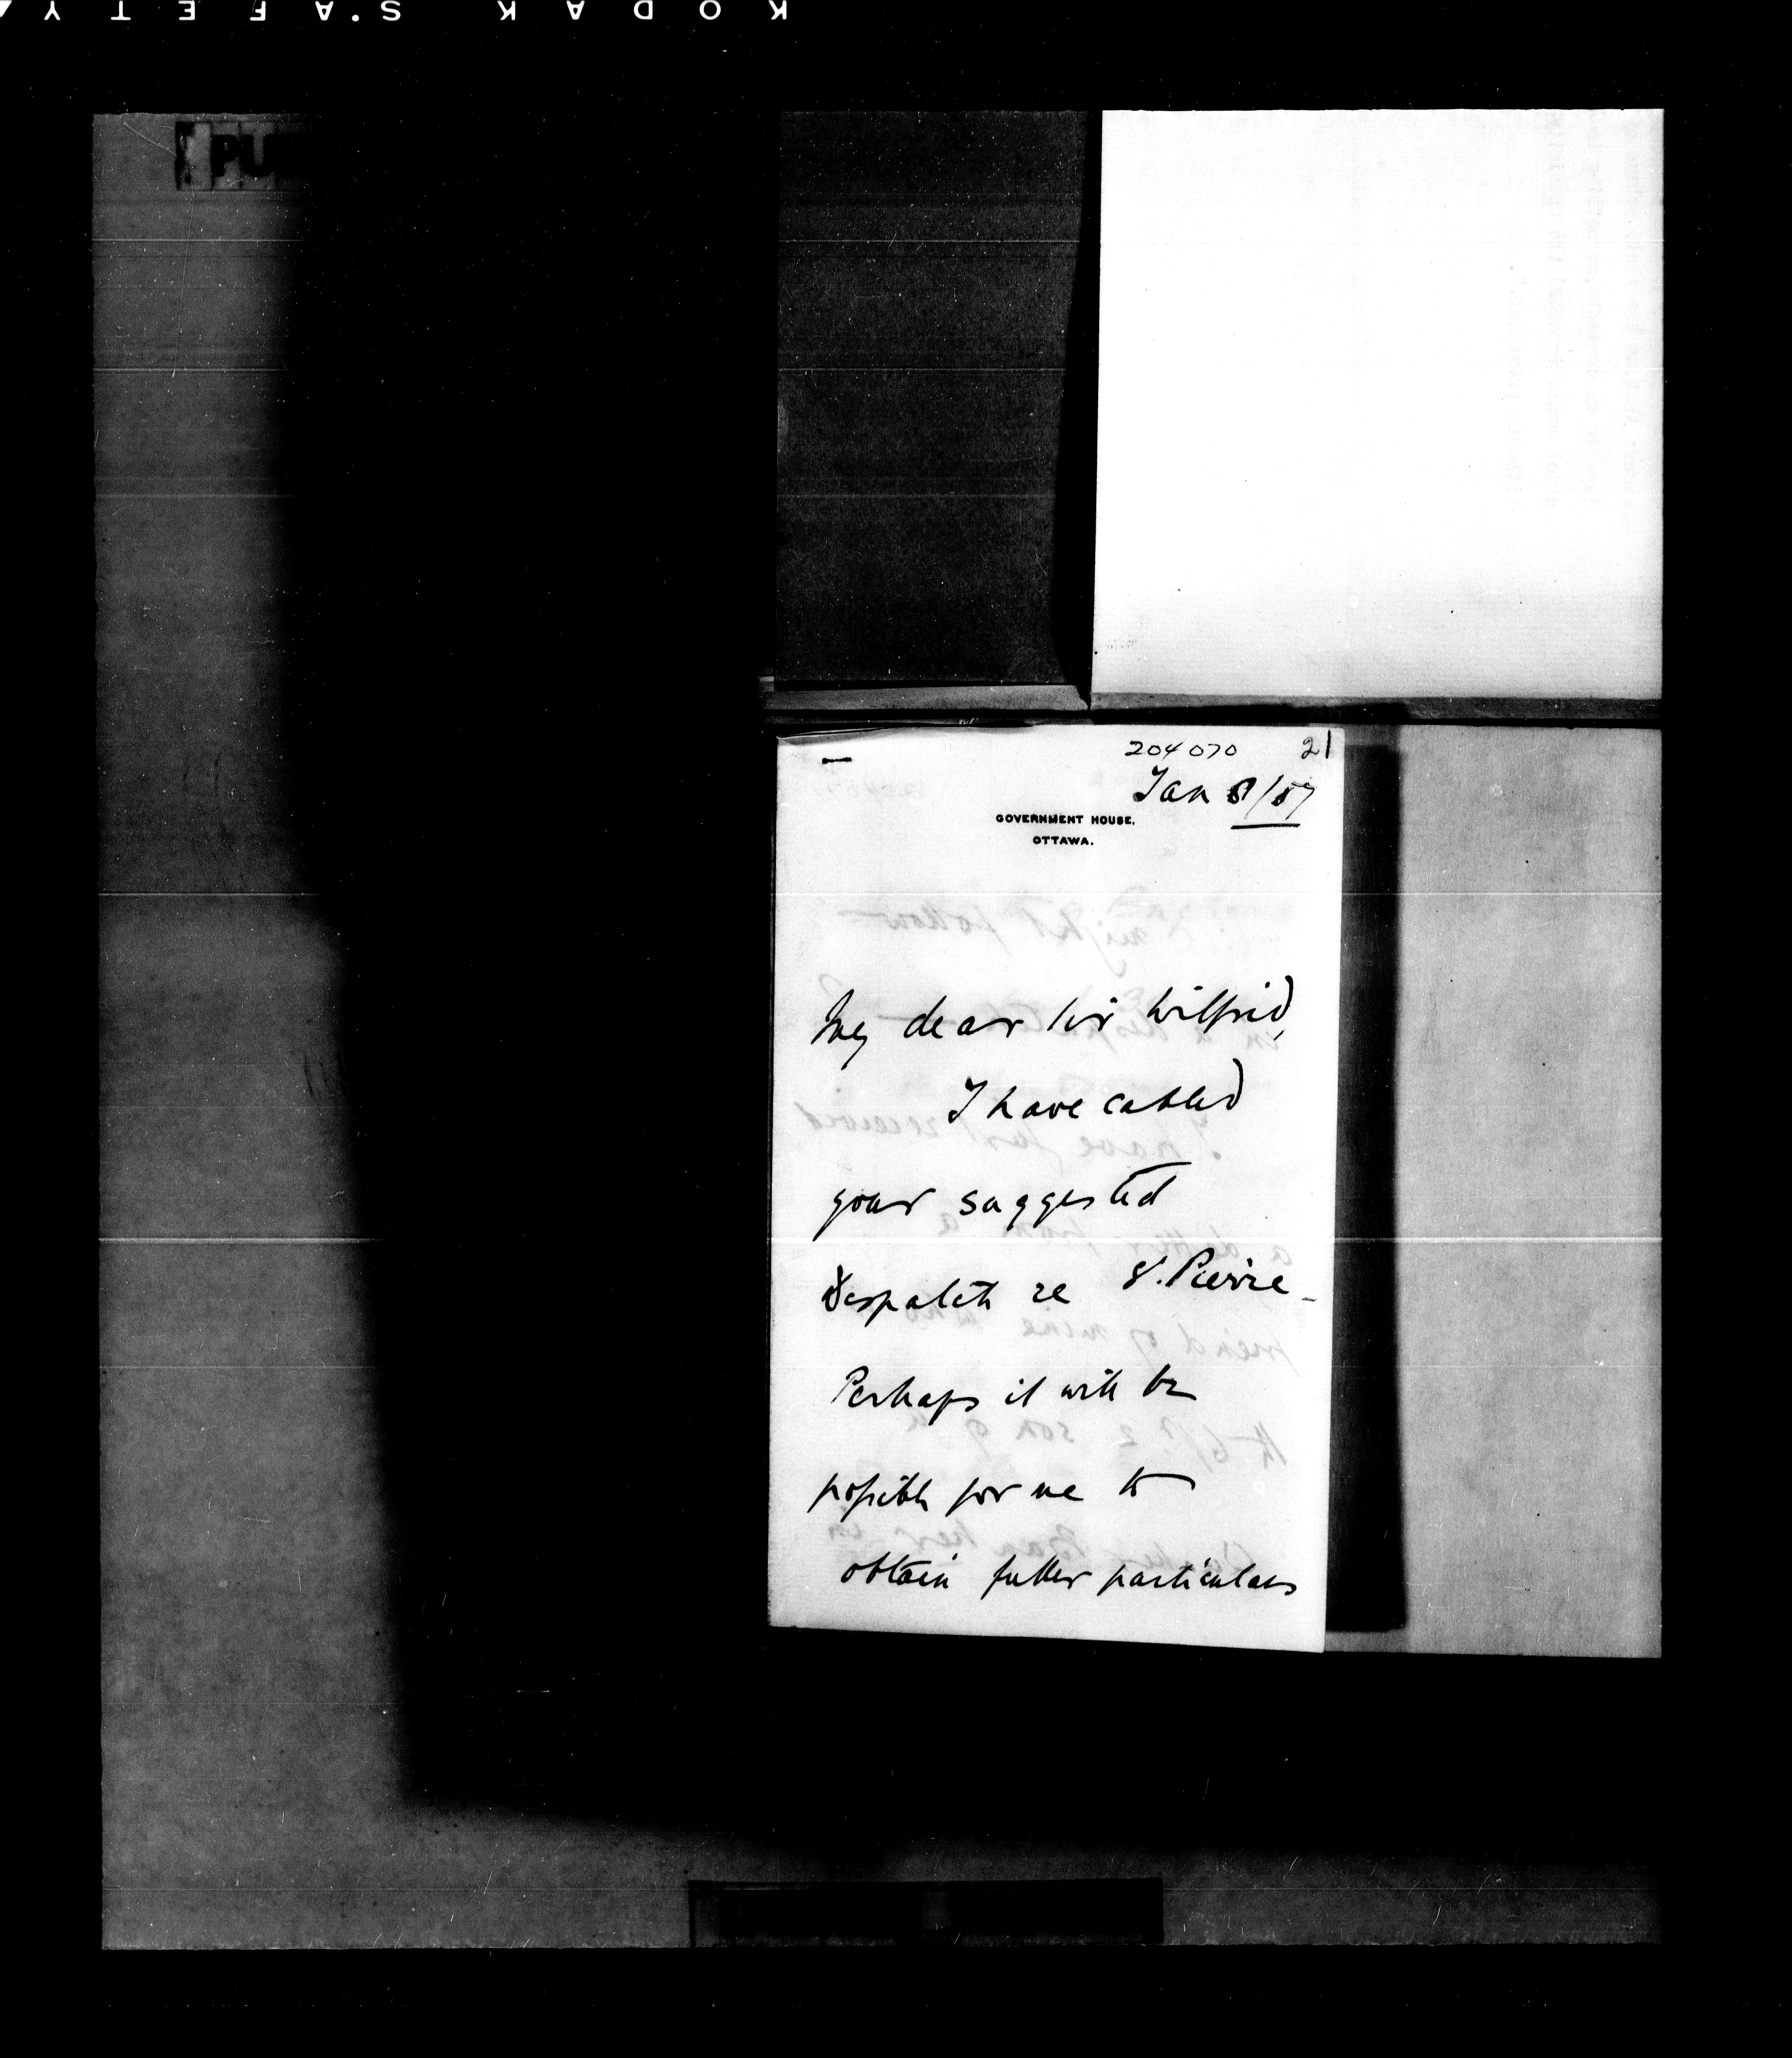 KODAK SAFETY
PU
204070 21
Jan 8/07
GOVERNMENT HOUSE.
OTTAWA.
My dear Sir Wilfrid,
I have cabled
your suggested
Despatch re St. Pierre_
Perhaps it will be
possible for me to
obtain fuller particulars